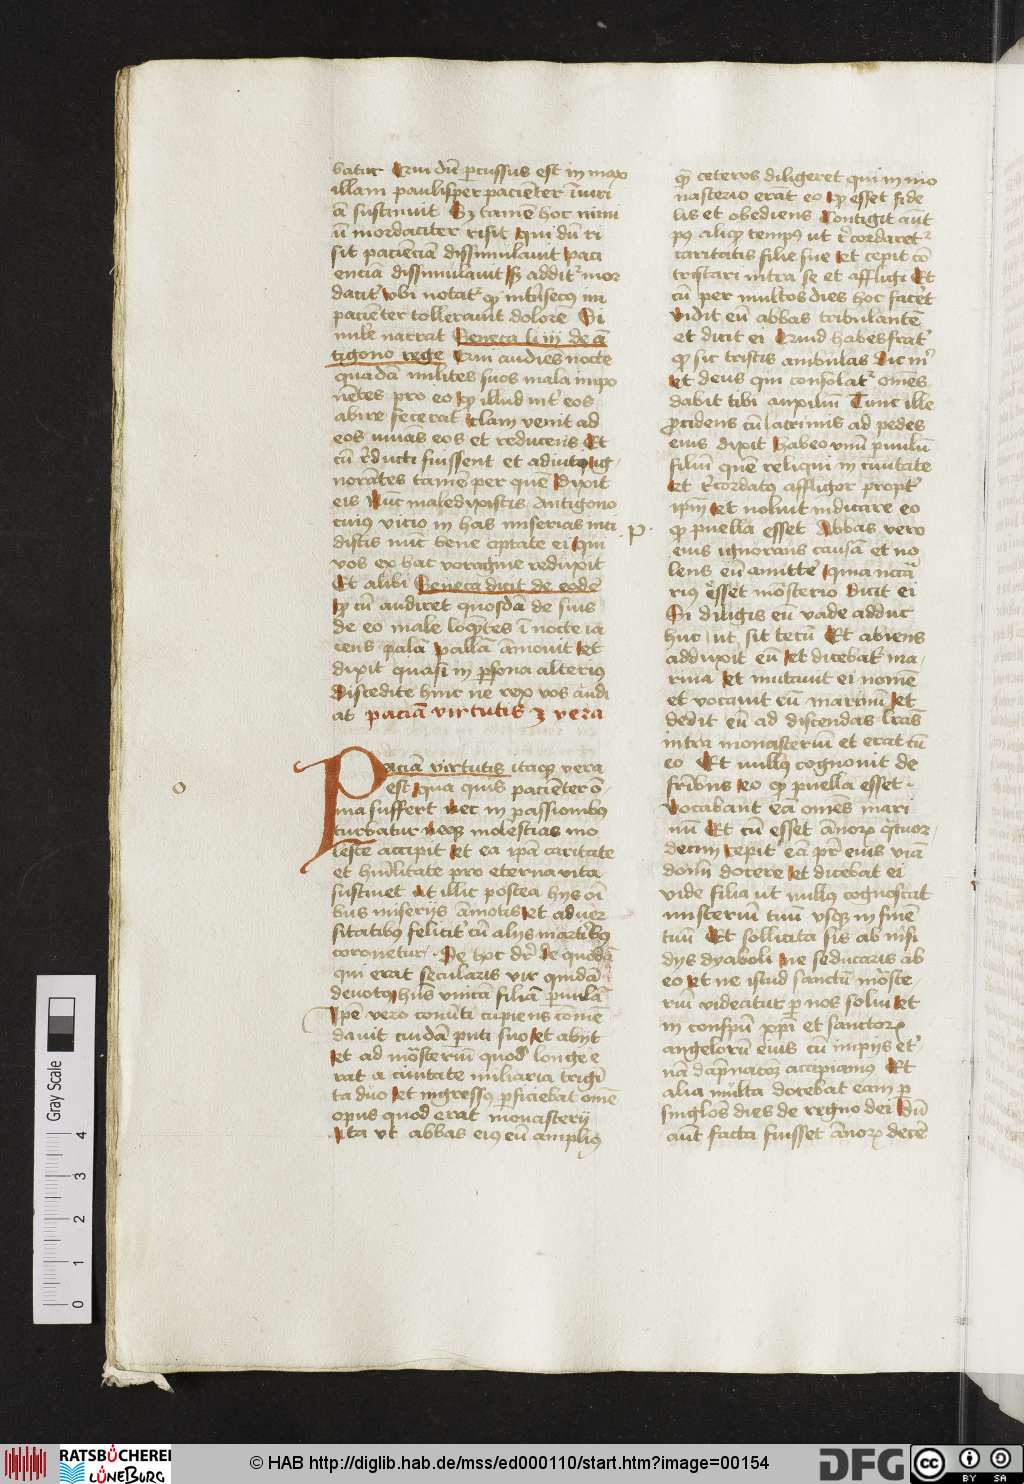 batur Qui dū percussus est in max
illam paulisper paciēter iniuri
ā sustinuit Sꝫ tamē hoc nimi
ū mordaciter risit qui dū ri
sit pacienciā dissimulauit paci
enciā dissimulauit sꝫ additʳ mor
daciter vbi notatʳ qꝫ intrīsecꝰ im
paciēter tollerauit dolorē Si
mile narrat Seneca li iij de ā
tigono rege Qui audiēs nocte
quadā milites suos mala impo
nētes pro eo qꝫ illud intʳ eos
abire fecerat clam venit ad
eos iuuās eos et reducens Et
cū reducti fuissent et adiutoꝝ ig
norātes tamē per quē Dixit
eis Nūc maledixistis Antigono
cuius vicio in has miserias inci
distis nūc bene optate ei qui
vos ex hac voragine reduxit
Et alibi Seneca dicit de eodē
qꝫ cū audiret quosdā de suis
de eo male loqūtes ī nocte ia
cens palā pallā āmouit et
dixit quasi in persona alterius
Discedite hinc ne rex vos audi
at paciā virtutis ꝫ vera
Paciā virtutis itaqꝫ vera
est qua quis pacienter o
mia suffert nec in passionibus
turbatur neqꝫ molestias mo
leste accipit et ea ipā caritate
et humilitate pro eterna vita
sustinet ut illic postea hijs oī
bus miserijs āmotis et aduer
sitatibus feliciter cū alijs martiribus
coronetur De hoc dr̄ de quodā
qui erat secularis vir quidā
deuotus hn̄s vnicā filiā paruulā
Ipe vero conuerti cupiens comē
dauit cuidā parenti suo et abijt
et ad mōsteriū quod longe e
rat a ciuitate miliaria trigī
ta duo et ingressus perficiebat omē
opus quod erat monasterij
Ita vt abbas eius eū amplius
qꝫ ceteros diligeret qui in mo
nasterio erāt eo qꝫ esset fide
lis et obediens Contigit aūt
pꝰ aliqꝫ tempꝰ ut recordaretʳ
caritatis filie sue et cepit cō
tristari intra se et affligi Et
cū per multos dies hoc facet
vidit eū abbas tribulantē
et dicit ei Quid habes fraʳ
qꝫ sic tristis ambulas Dic mʳ
et deus qui consolatʳ omēs
dabit tibi auxiliū Tunc ille
procidens cū lacrimis ad pedes
eius dixit habeo vnū paruulū
filiū quē reliqui in ciuitate
et recordatus affligor proptʳ
ipm̄ et noluit indicare eo
qꝫ puella esset Abbas vero
eius ignorans causā et no
lens eū amittere quia necessa
rius esset mōsterio Dicit ei
Si diligis eū vade adduc
huc ut sit tecū Et abiens
adduxit eū et dicebatʳ ma
rina et mutauit ei nomē
et vocauit eū marinū et
dedit eū ad discendas lr̄as
intra monasteriū et erat cū
eo Et nullus cognouit de
fratribus eo qꝫ puella esset
Vocabant eā omēs mari
nū Et cū esset ānorꝫ quatuor
decim cepit eā pater eius viā
domini docere et dicebat ei
vide filia ut nullus cognoscat
misteriū tuū vsqꝫ in finē
tuū Et sollicita sis ab insi
dijs dyaboli ne seducaris ab
eo et ne istud sanctū mōste
riū videatur per nos solui et
in conspectu xpi et sanctorꝫ
angelorū eius cū impijs eter
nā dāpnacōꝫ accipiamus Et
alia multa docebat eam per
singlos dies de regno dei Dū
aūt facta fuisset ānorꝫ decē
p
o
Gray Scale
4
3
2
1
0
RATSBÜCHEREI
LÜNEBURG
© HAB http://diglib.hab.de/mss/ed000110/start.htm?image=00154
DFG
cc
BY SA